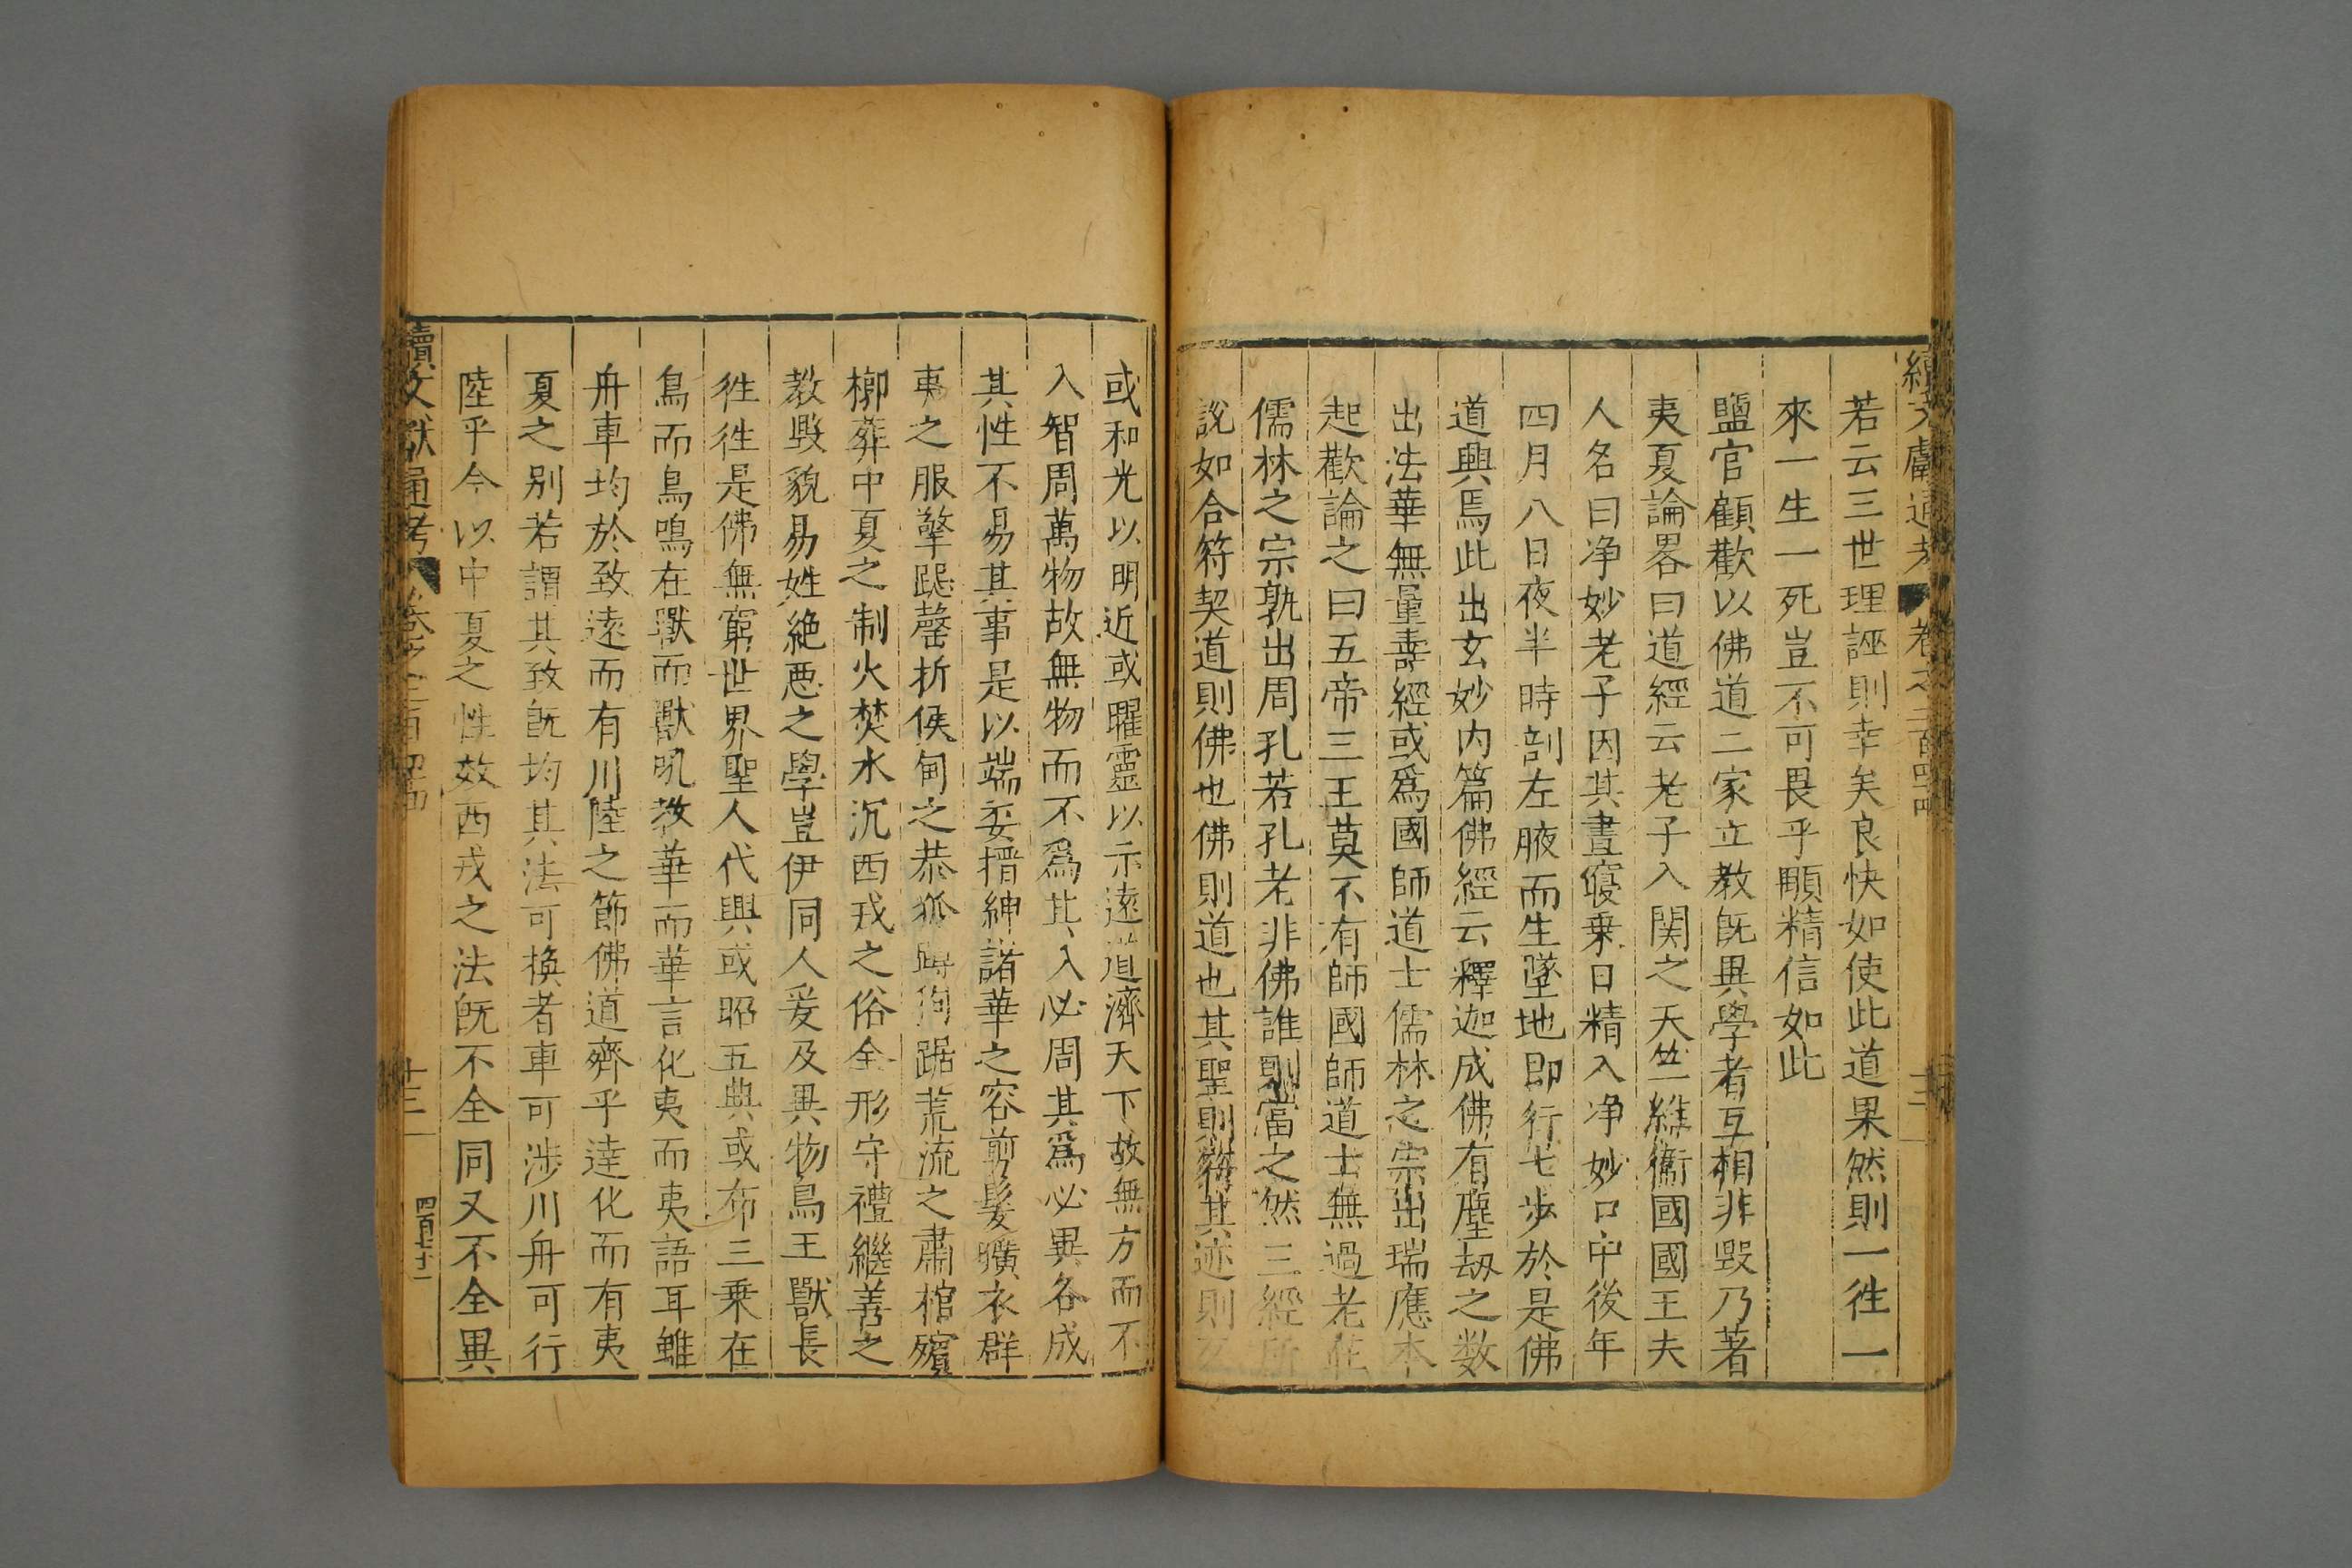 若云三世理誣則幸矣良快如使此道果然則一徃一
來一生一死豈不可畏乎願精信如此
鹽官顧歡以佛道二家立教旣異學者互相非毀乃著
夷夏論畧曰道經云老子入関之天竺維衞國國王夫
人名曰净妙老子因其晝寢乗日精入净妙口中後年
四月八日夜半時剖左腋而生墜地即行七步於是佛
道興焉此出玄妙内篇佛經云釋迦成佛有塵劫之数
出法華無量壽經或爲國師道士儒林之宗出瑞應本
起歡論之曰五帝三王莫不有師國師道士無過老莊
儒林之宗孰出周孔若孔老非佛誰則當之然三經所
說如合符契道則佛也佛則道也其聖則符其迹則
或和光以明近或曜靈以示遠道濟天下故無方而不
入智周萬物故無物而不爲其入必周其爲必異各成
其性不易其事是以端委搢紳諸華之容剪髮曠衣群
夷之服擎跽罄折侯甸之恭狐蹲狗踞荒流之肅棺殯
槨葬中夏之制火焚水沉西戎之俗全形守禮繼善之
教毀貌易姓絶惡之學豈伊同人爰及異物鳥王獸長
徃徃是佛無窮世界聖人代興或昭五典或布三乗在
鳥而鳥鳴在獸而獸吼教華而華言化夷而夷語耳雖
舟車均於致遠而有川陸之節佛道齊乎達化而有夷
夏之别若謂其致旣均其法可換者車可涉川舟可行
陸乎今以中夏之性效西戎之法旣不全同又不全異
續文獻通考
四百七十一